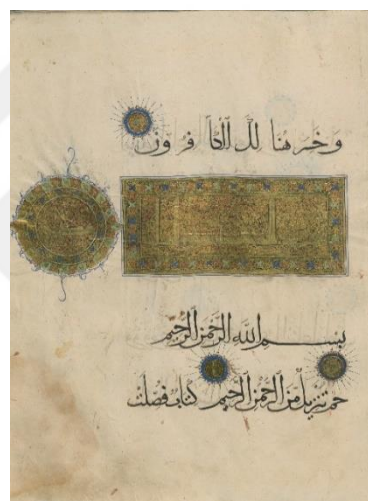 وَخَسِرَ هُنَا لِكَ الْكَا فِرُ وْنَ
بِسْمِ اللّٰهِ الرَّحْمٰنِ الرَّحِيْمِ
حم تَنْزِيْلٌ مِّنَ الرَّحْمٰنِ الرَّحِيْمِ كِتَابٌ فُصِّلَتْ